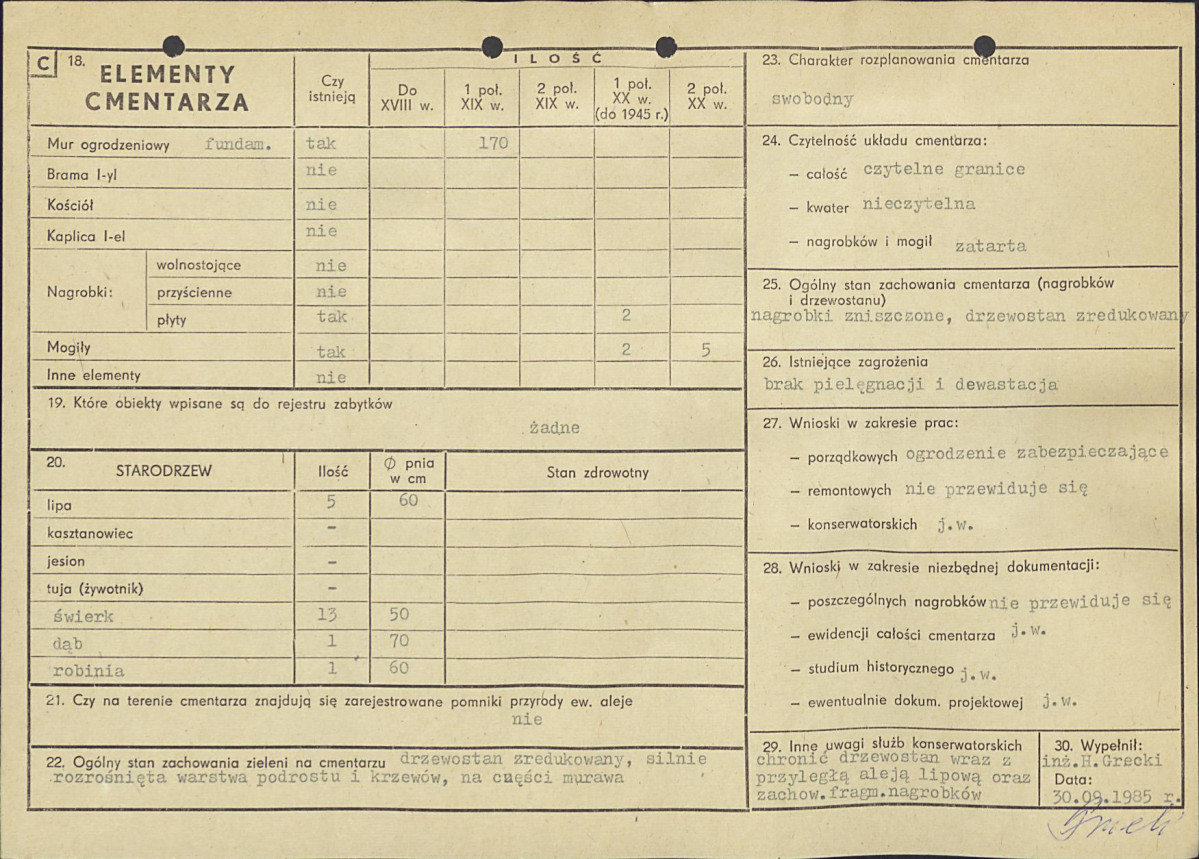 C 18. ELEMENTY CMENTARZA
Czy istnieją
ILOŚĆ
Do XVIII w.
1 poł. XIX w.
2 poł. XIX w.
1 poł. XX w. (do 1945 r.)
2 poł. XX w.
Mur ogrodzeniowy fundam. tak 170
Brama I-yl nie
Kościół nie
Kaplica I-el nie
Nagrobki:
wolnostojące nie
przyścienne nie
płyty tak 2
Mogiły tak 2 5
Inne elementy nie
19. Które obiekty wpisane są do rejestru zabytków
żadne
20. STARODRZEW Ilość Ø pnia w cm Stan zdrowotny
lipa 5 60
kasztanowiec -
jesion -
tuja (żywotnik) -
świerk 13 50
dąb 1 70
robinia 1 60
21. Czy na terenie cmentarza znajdują się zarejestrowane pomniki przyrody ew. aleje
nie
22. Ogólny stan zachowania zieleni na cmentarzu drzewostan zredukowany, silnie
rozrośnięta warstwa podrostu i krzewów, na części murawa
23. Charakter rozplanowania cmentarza
swobodny
24. Czytelność układu cmentarza:
– całość czytelne granice
– kwater nieczytelna
– nagrobków i mogił zatarta
25. Ogólny stan zachowania cmentarza (nagrobków
i drzewostanu)
nagrobki zniszczone, drzewostan zredukowany
26. Istniejące zagrożenia
brak pielęgnacji i dewastacja
27. Wnioski w zakresie prac:
– porządkowych ogrodzenie zabezpieczające
– remontowych nie przewiduje się
– konserwatorskich j.w.
28. Wnioski w zakresie niezbędnej dokumentacji:
– poszczególnych nagrobków nie przewiduje się
– ewidencji całości cmentarza j.w.
– studium historycznego j.w.
– ewentualnie dokum. projektowej j.w.
29. Inne uwagi służb konserwatorskich
chronić drzewostan wraz z
przyległą aleją lipową oraz
zachow.fragm.nagrobków
30. Wypełnił:
inż.H.Grecki
Data:
30.09.1985 r.